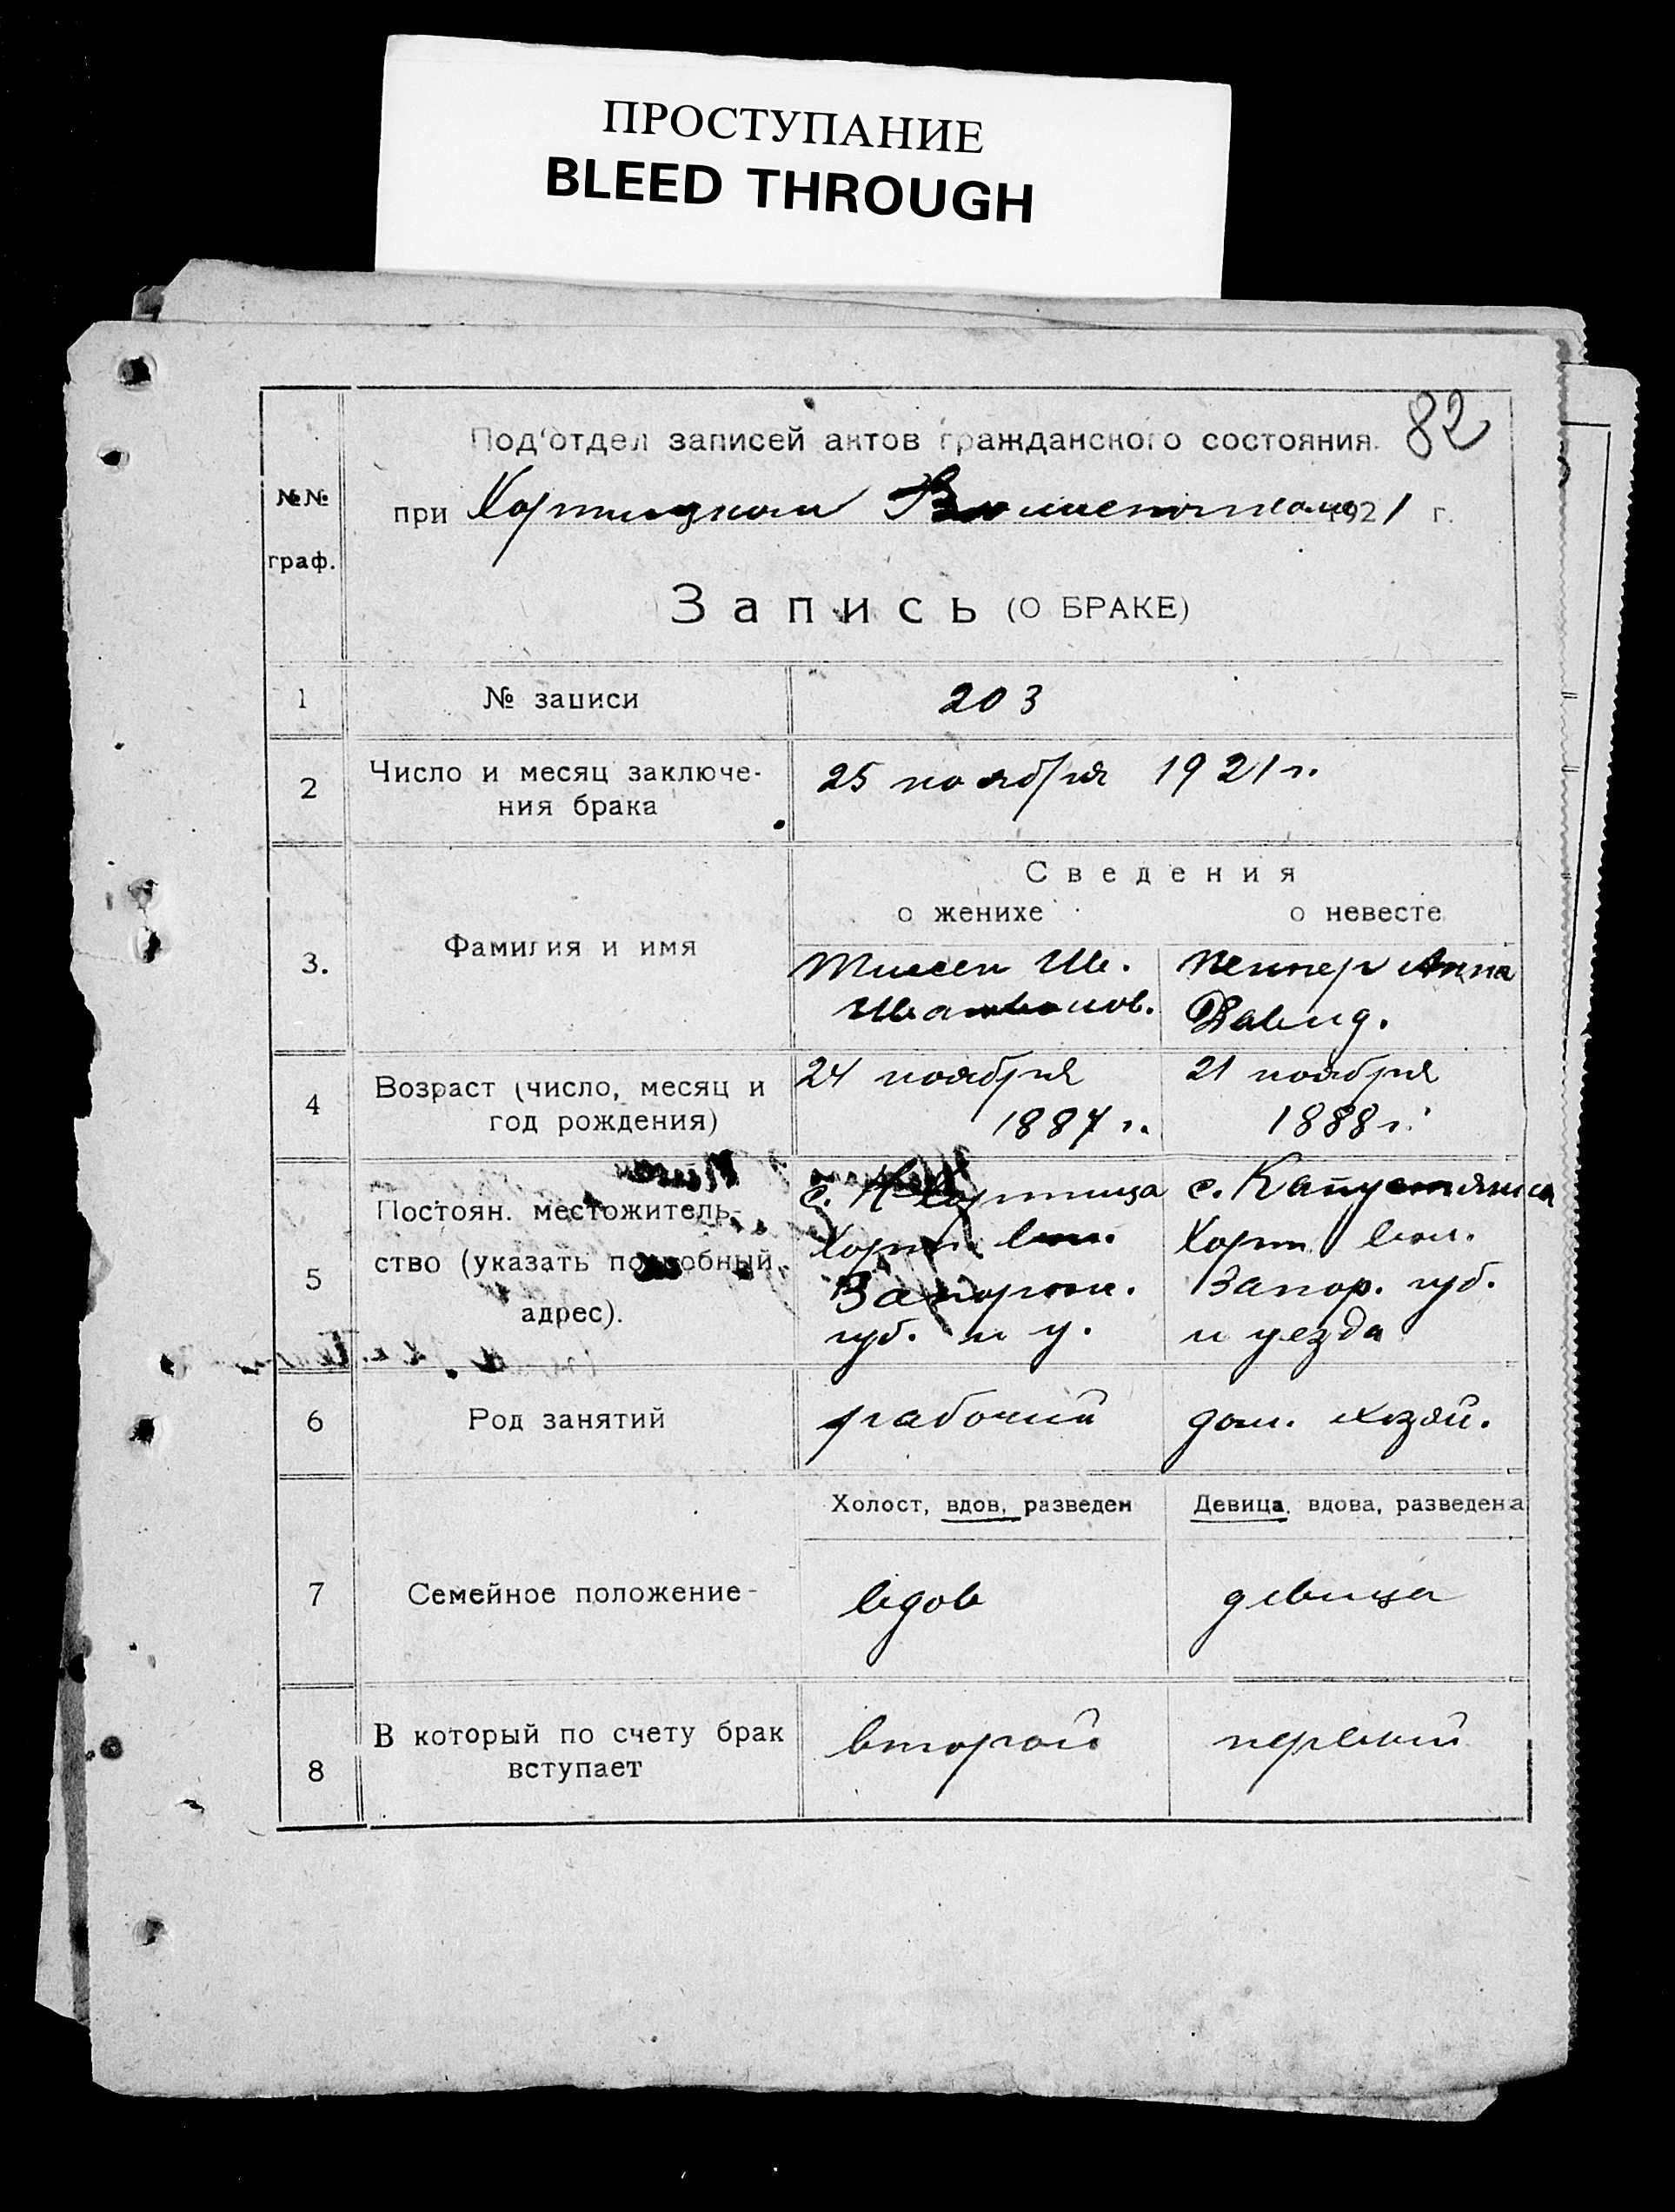 ПРОСТУПАНИЕ
BLEED THROUGH
82
Под'отдел записей актов гражданского состояния.
при Хортицком Волисполкоме 1921 г.
№№
граф.
Запись (О БРАКЕ)
1 № записи 203
2 Число и месяц заключе-
ния брака
25 ноября 1921 г.
Сведения
о женихе о невесте
3. Фамилия и имя
Тиссен Ив. Пеннер Анна
Иванов. Давид.
4 Возраст (число, месяц и
год рождения)
24 ноября 21 ноября
1887 г. 1888 г.
5 Постоян. местожитель-
ство (указать подробный
адрес).
с. Хортица с. Капустянка
Хорт. вол. Хорт. вол.
Запорож. Запор. губ.
губ. и у. и уезда
6 Род занятий рабочий дом. хозяй.
Холост, вдов, разведен Девица, вдова, разведена
7 Семейное положение - вдов девица
8 В который по счету брак
вступает
второй первый